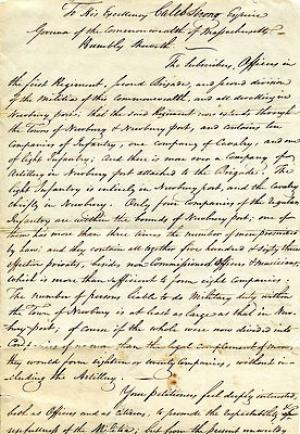 To His Excellency Caleb Strong Esquire
Governor of the Commonwealth of Massachusetts
Humbly Sheweth.
The Subscribers, Officers in
the first Regiment, second Brigade, and second division
of the Militia of this Commonwealth, and all dwelling in
Newburyport; that the said Regiment now extends through
the Towns of Newbury & Newburyport, and contains ten
Companies of Infantry, one company of Cavalry, and one
of light Infantry; And there is moreover a Company of
Artillery in Newburyport attached to the Brigade. The
light Infantry is entirely in Newburyport, and the Cavalry
chiefly in Newbury. Only four Companies of the regular
Infantry are within the bounds of Newburyport; one of
them has more than three times the number of men prescribed
by law; and they contain all together five hundred & sixty three
effective privates, besides non-Commissioned Officers & musicians,
which is more than sufficient to form eight companies.
The number of persons liable to do Military duty within
the Town of Newbury is at least as large as that in New-
buryport; of course if the whole were now divided into
Companies of no more than the legal complement of men,
they would form eighteen or twenty Companies, without in-
cluding the Artillery.
Your Petitioners feel deeply interested,
both as Officers and as Citizens, to promote the respectability &
usefulness of the Militia; but from the present unwieldy